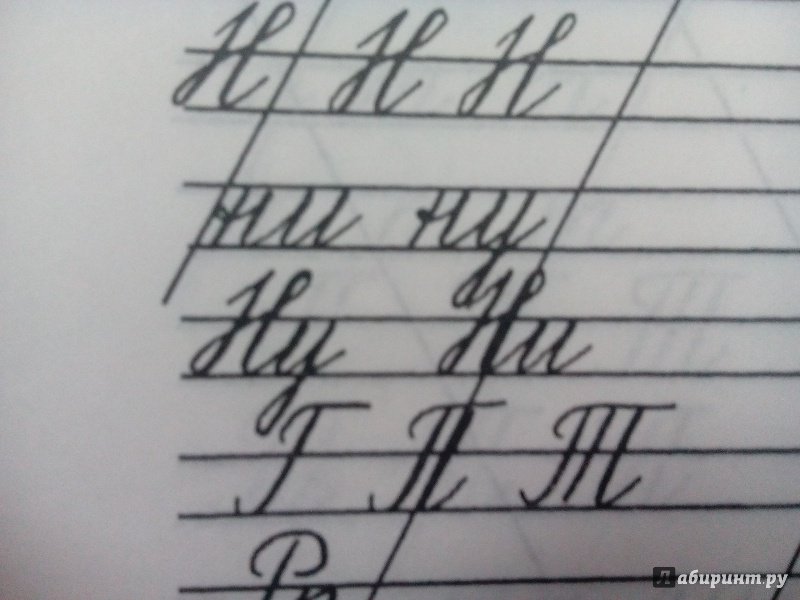 Н Н Н
ни ну
Ну Ни
Г П Т
Лабиринт.ру